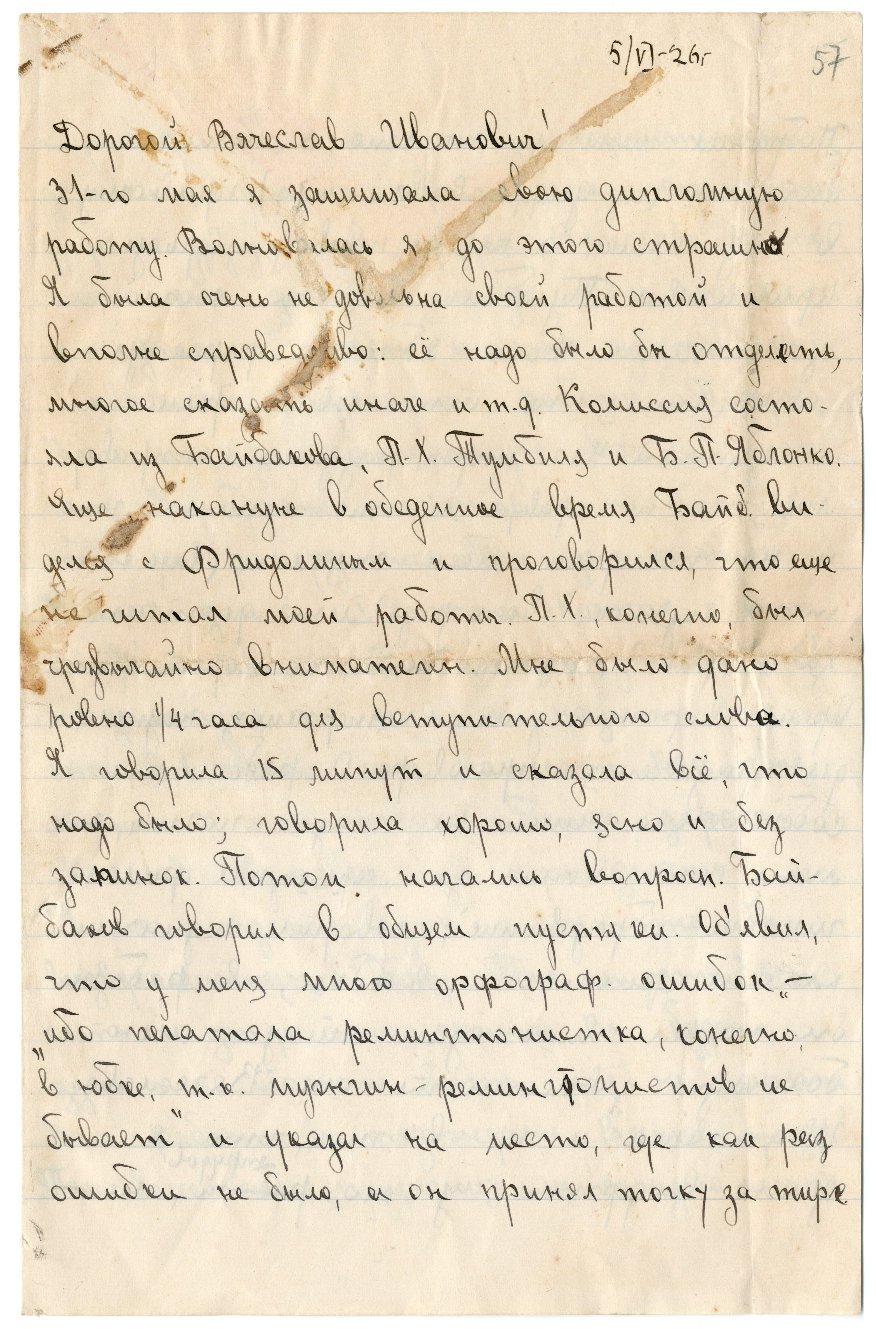 5/VI-26г
57
Дорогой Вячеслав Иванович!
31-го мая я защищала свою дипломную
работу. Волновалась я до этого страшно.
Я была очень не довольна своей работой и
вполне справедливо: её надо было бы отделать,
многое сказать иначе и т.д. Комиссия состо-
яла из Байбакова, П.Х. Тумбиля и Б.П. Яблонко.
Еще накануне в обеденное время Байб. ви-
делся с Фридолиным и проговорился, что еще
не читал моей работы. П.Х., конечно, был
чрезвычайно внимателен. Мне было дано
ровно 1/4 часа для вступительного слова.
Я говорила 15 минут и сказала всё, что
надо было; говорила хорошо, ясно и без
запинок. Потом начались вопросы. Бай-
баков говорил в общем пустяки. Об'явил,
что у меня много орфограф. ошибок „—
„ибо печатала ремингтонистка, конечно,
в юбке, т.к. мужчин-ремингтонистов не
бывает" и указал на место, где как раз
ошибки не было, а он принял точку за тире